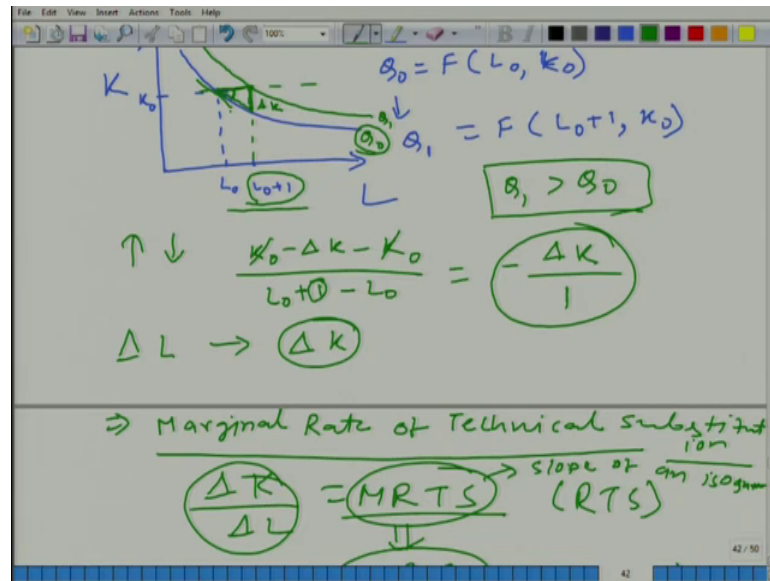 File Edit View Insert Actions Tools Help
100%
B I
K K₀ ΔK
Q₁
Q₀
Q₀ = F(L₀, K₀)
↓
Q₁ = F(L₀+1, K₀)
L₀ L₀+1 L
Q₁ > Q₀
↑ ↓ K₀-ΔK-K₀ / L₀+1-L₀ = -ΔK/1
ΔL → ΔK
⇒ Marginal Rate of Technical Substitution
ΔK/ΔL = MRTS → slope of an isoquan
(RTS)
⇓
42 / 50
42